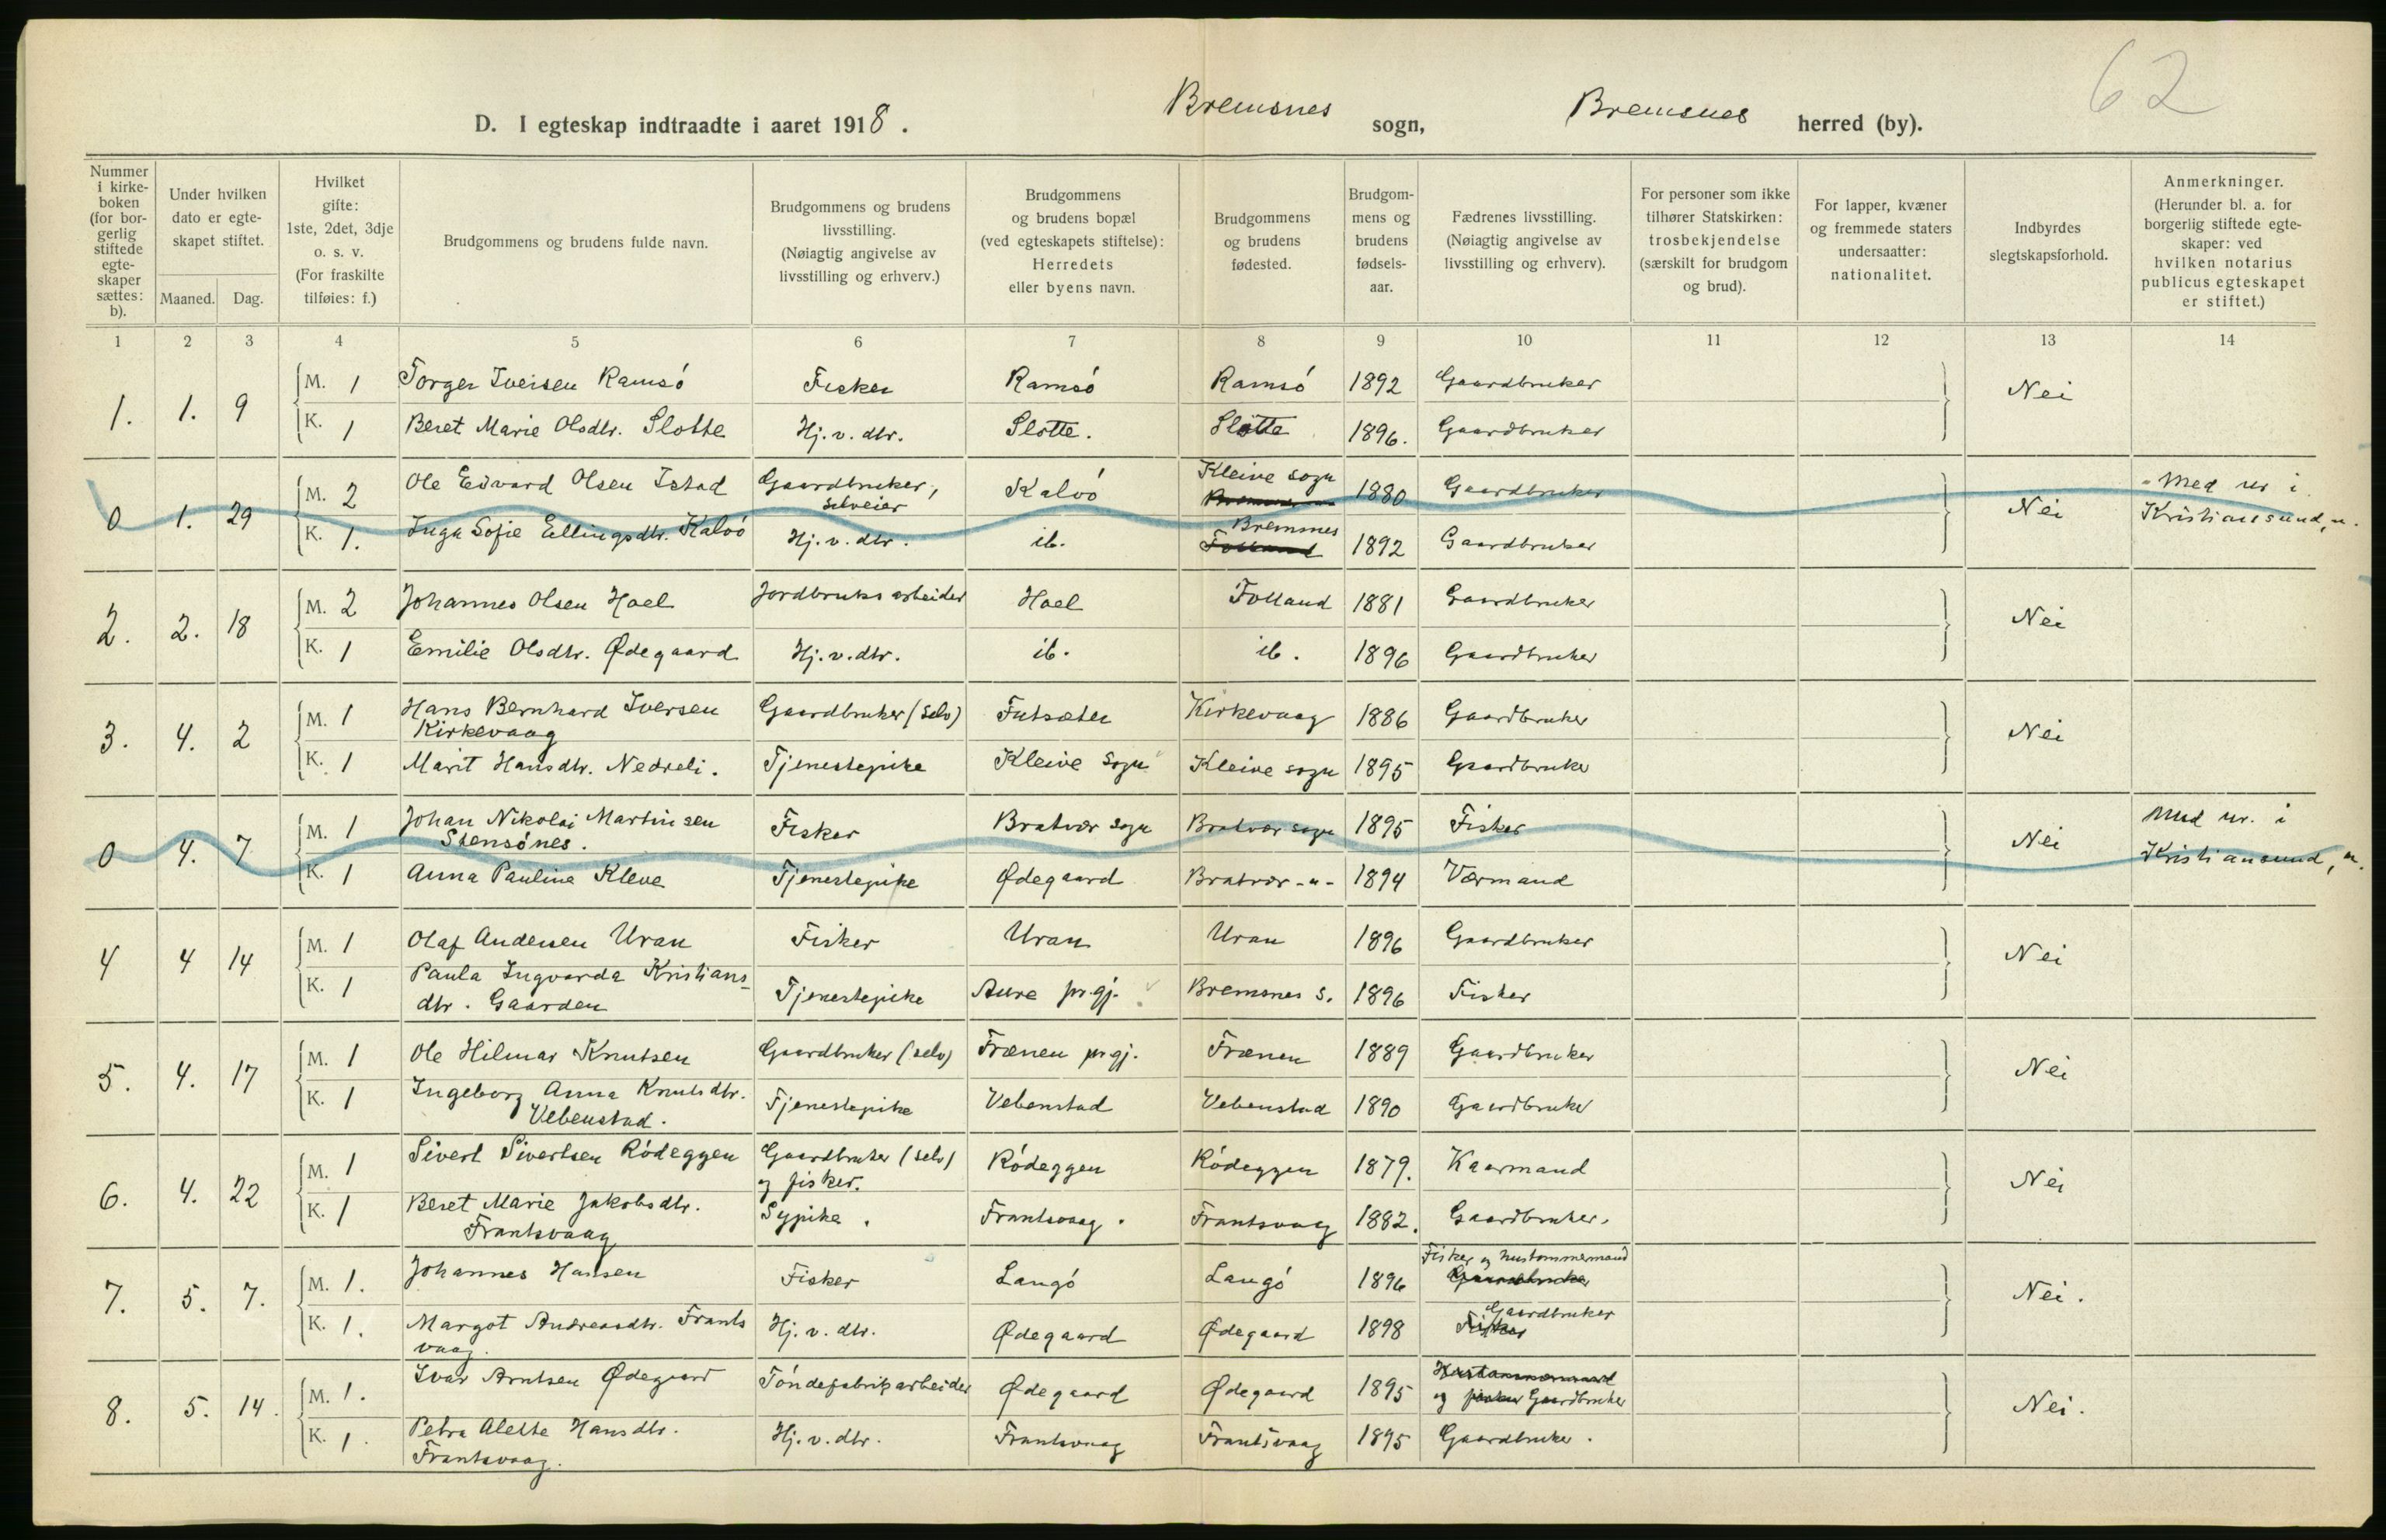 62
D. I egteskap indtraadte i aaret 1918. Bremsnes sogn, Bremsnes herred (by).
Nummer i kirke-boken (for bor-gerlig stiftede egte-skaper sættes: b).
Under hvilken dato er egte-skapet stiftet.
Maaned. Dag.
Hvilket gifte: 1ste, 2det, 3dje o. s. v. (For fraskilte tilføies: f.)
Brudgommens og brudens fulde navn.
Brudgommens og brudens livsstilling. (Nøiagtig angivelse av livsstilling og erhverv.)
Brudgommens og brudens bopæl (ved egteskapets stiftelse): Herredets eller byens navn.
Brudgommens og brudens fødested.
Brudgom-mens og brudens fødsels-aar.
Fædrenes livsstilling. (Nøiagtig angivelse av livsstilling og erhverv).
For personer som ikke tilhører Statskirken: trosbekjendelse (særskilt for brudgom og brud).
For lapper, kvæner og fremmede staters undersaatter: nationalitet.
Indbyrdes slegtskapsforhold.
Anmerkninger. (Herunder bl. a. for borgerlig stiftede egte-skaper: ved hvilken notarius publicus egteskapet er stiftet.)
1 2 3 4 5 6 7 8 9 10 11 12 13 14
1. 1. 9 M. 1 Torger Iversen Ramsó Fisker Ramsó Ramsó 1892 Gaardbruker Nei
K. 1 Beret Marie Olsdtr. Slotte Hj. v. dtr. Slotte. Slotte 1896. Gaardbruker
0 1. 29 M. 2 Ole Edvard Olsen Istad Gaardbruker, selveier Kalvó Kleive sogn 1880 Gaardbruker Nei Med ur i Kristiansund, n.
K. 1. Inga Sofie Ellingsdtr. Kalvó Hj. v. dtr. ib. Bremsnes Folland 1892 Gaardbruker
2. 2. 18 M. 2 Johannes Olsen Hoel Jordbruksarbeider Hoel Folland 1881 Gaardbruker Nei
K. 1 Emilie Olsdtr. Ødegaard Hj. v. dtr. ib. ib. 1896 Gaardbruker
3. 4. 2 M. 1 Hans Bernhard Iversen Kirkevaag Gaardbruker (selv) Futsæter Kirkevaag 1886 Gaardbruker Nei
K. 1 Marit Hansdtr. Nedreli. Tjenestepike Kleive Sogn Kleive sogn 1895 Gaardbruker
0 4. 7 M. 1 Johan Nikolai Martinsen Stensónes. Fisker Bratvær sogn Bratvær sogn 1895 Fisker Nei Med ur. i Kristiansund, n.
K. 1 Anna Pauline Kleve Tjenestepike Ødegaard Bratvær -"- 1894 Værmand
4 4 14 M. 1 Olaf Andersen Uran Fisker Uran Uran 1896 Gaardbruker Nei
K. 1 Paula Ingvarda Kristians-dtr. Gaarden Tjenestepike Aure pr.gj. Bremsnes s. 1896 Fisker
5. 4. 17 M. 1 Ole Hilmar Knutsen Gaardbruker (selv) Frænen prgj. Frænen 1889 Gaardbruker Nei
K. 1 Ingeborg Anna Knutsdtr. Vebenstad. Tjenestepike Vebenstad Vebenstad 1890 Gaardbruker
6. 4. 22 M. 1 Sivert Sivertsen Ródeggen Gaardbruker (selv) og fisker. Ródeggen Ródeggen 1879. Kaarmand Nei
K. 1 Beret Marie Jakobsdtr. Frantsvaag Sypike. Frantsvaag. Frantsvaag 1882. Gaardbruker.
7. 5. 7. M. 1. Johannes Hansen Fisker Langó Langó 1896 Fisker og hustømmermand Gaardbruker Nei.
K. 1. Margot Andreasdtr. Frantsvaag. Hj. v. dtr. Ødegaard Ødegaard 1898 Gaardbruker Fisker
8. 5. 14. M. 1. Ivar Arntsen Ødegaard Tóndefabrikarbeider Ødegaard Ødegaard 1895 Hustømmermand og fisker Gaardbruker Nei.
K. 1. Petra Alette Hansdtr. Frantsvaag. Hj. v. dtr. Frantsvaag Frantsvaag 1895 Gaardbruker.